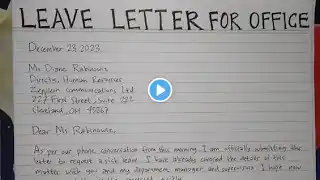 LEAVE LETTER FOR OFFICE
December 23, 2023
Ms. Diane Rabinowitz
Director, Human Resources
Zeppelin Communications Ltd
227 First Street, Suite 221
Cleveland, OH 45267
Dear Ms. Rabinowitz,
As per our phone conversation from this morning, I am officially submitting this
letter to request a sick leave. I have already conveyed the details of this
matter with you and my department manager and supervisors. I hope now